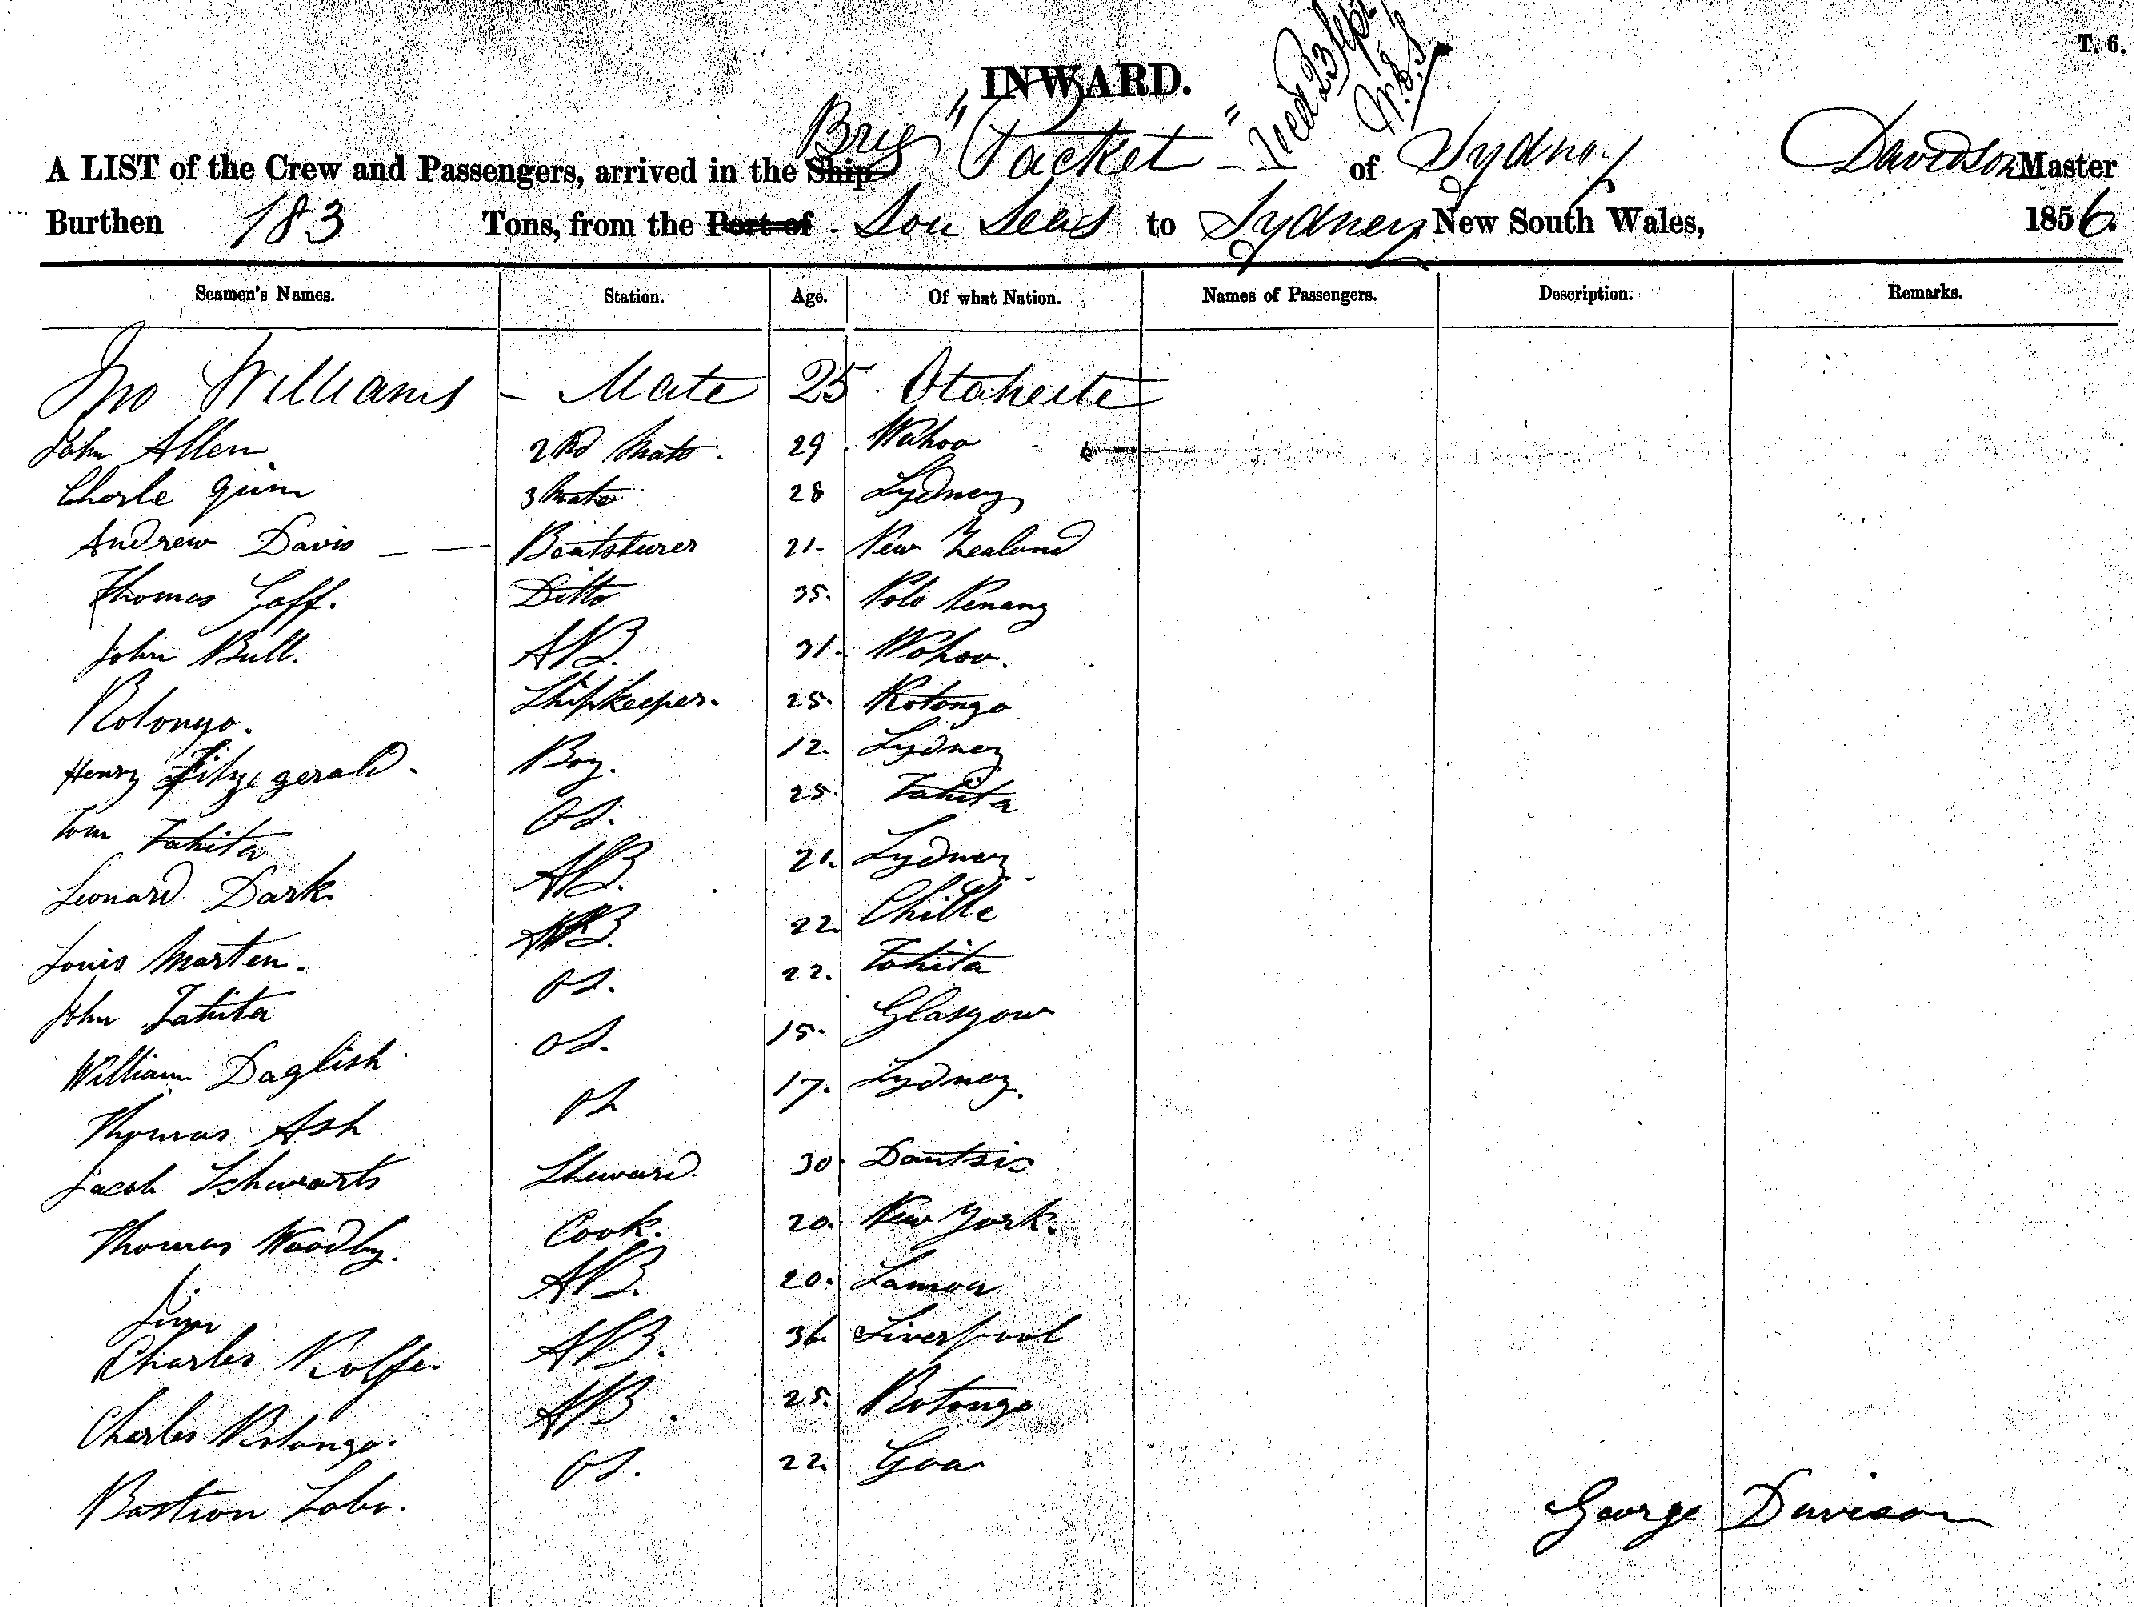 T. 6.
INWARD.
A LIST of the Crew and Passengers, arrived in the Ship Brig "Packet" of Sydney Davidson Master
Burthen 183 Tons, from the Port of Sou Seas to Sydney New South Wales, 1856.
Seamen's Names. Station. Age. Of what Nation. Names of Passengers. Description. Remarks.
Jno Williams - Mate 25 Otaheite
John Allen 2nd Mate. 29. Wahoo
Charle Quin 3 Mate 28 Sydney
Andrew Davis Boatsturer 21. New Zealand
Thomas Goff. Ditto 35. Polo Penang
John Bull. AB. 31. Wohoo.
Rotongo. Shipkeeper. 25. Rotongo
Henry Fitzgerald. Boy. 12. Sydney
Tom Tahita OS. 25. Tahita
Leonard Dark AB. 21. Sydney
Louis Marten. AB. 22. Chille
John Tahita OS. 22. Tahita
William Daglish OS. 15. Glasgow
Thomas Ash OS 17. Sydney.
Jacob Schwarts Steward 30. Dantsic
Thomas Woodby. Cook. 20. New York.
Jim AB. 20. Samoa
Charles Rolfe. AB. 36. Liverpool
Charles Rotongo. AB. 25. Rotongo
Bastion Lobo. OS. 22. Goa
George Davison